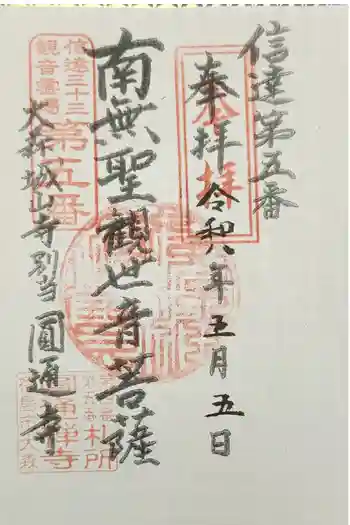 信達第五番
奉拝
令和八年五月五日
南無聖観世音菩薩
信達三十三
観音霊場
第五番
大森城山寺別当圓通寺
札所
圓通禅寺